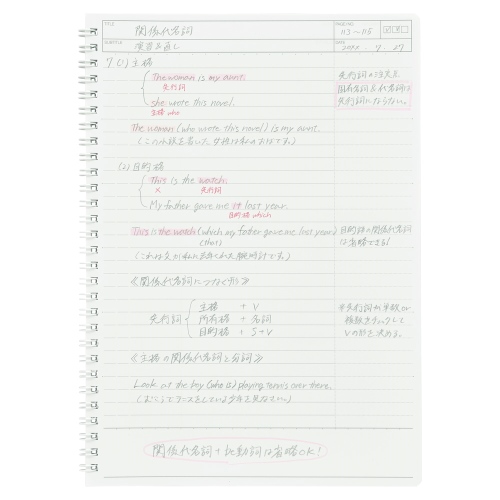 TITLE 関係代名詞
PAGE NO. 113～115
SUBTITLE 演習&直し
DATE 2022. 7. 27
7 (1) 主格
The woman is my aunt.
先行詞
she wrote this novel.
主格 who
The woman (who wrote this novel) is my aunt.
(この小説を書いた女性は私のおばです。)
先行詞の注意点
固有名詞&代名詞は
先行詞にならない。
(2) 目的格
This is the watch.
× 先行詞
My father gave me it last year.
目的格 which
This is the watch (which my father gave me last year)
(that)
(これは父が私に去年くれた腕時計です。)
目的格の関係代名詞
は省略できる!
≪関係代名詞につなぐ形≫
先行詞
主格 + V
所有格 + 名詞
目的格 + S+V
※先行詞が単数or
複数をチェックして
Vの形を決める。
≪主格の関係代名詞と分詞≫
Look at the boy (who is) playing tennis over there.
(むこうでテニスをしている少年を見なさい。)
関係代名詞 + be動詞は省略OK!